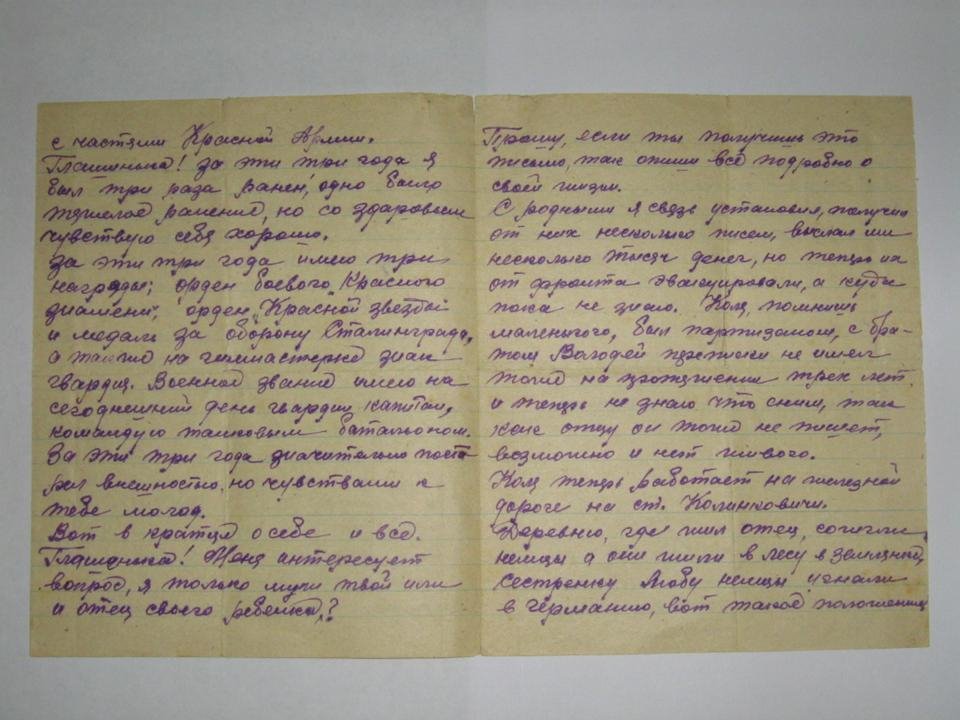 с частями Красной Армии.
Глашинька! За эти три года я
был три раза ранен, одно было
тяжелое ранение, но со здоровьем
чувствую себя хорошо.
За эти три года имею три
награды; орден боевого Красного
знамени, орден "Красной звезды"
и медаль за оборону Сталинграда,
а также на гимнастерке знак
гвардии. Военное звание имею на
сегоднешний день гвардии капитан,
командую танковым батальоном.
За эти три года значительно поста
рел внешностью, но чувствами к
тебе молод.
Вот в кратце о себе и всё.
Глашинька! Меня антересует
вопрос, я только муж твой или
и отец своего ребенка?
Прошу, если ты получишь это
письмо, так опиши всё подробно о
своей жизни.
С родными я связь установил, получил
от них несколько писем, выслал им
несколько тысяч денег, но теперь их
от фронта эвакуировали, а куда
пока не знаю. Коля, помнишь
маленького, был партизаном, с бра-
том Володей переписки не имел
тоже на протяжении трех лет
и теперь не знаю что с ним, так
как отцу он тоже не пишет,
возможно и нет живого.
Коля теперь работает на железной
дороге на ст. Калинковичи.
Деревню, где жил отец, сожгли
немцы а они жили в лесу в землянке,
сестренку Любу немцы угнали
в Германию, вот такое положение